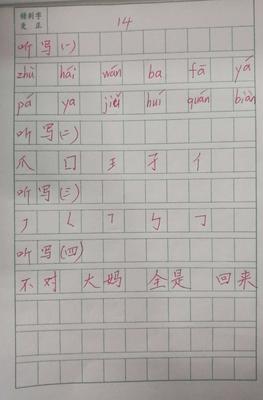 错别字
更正
14
听写(一)
zhú hái wán ba fā yá
pá ya jiù huí quán biàn
听写(二)
爪 口 王 子 亻
听写(三)
㇇ ㇛ ㇕ ㄣ ㇆
听写(四)
不对 大妈 全是 回来